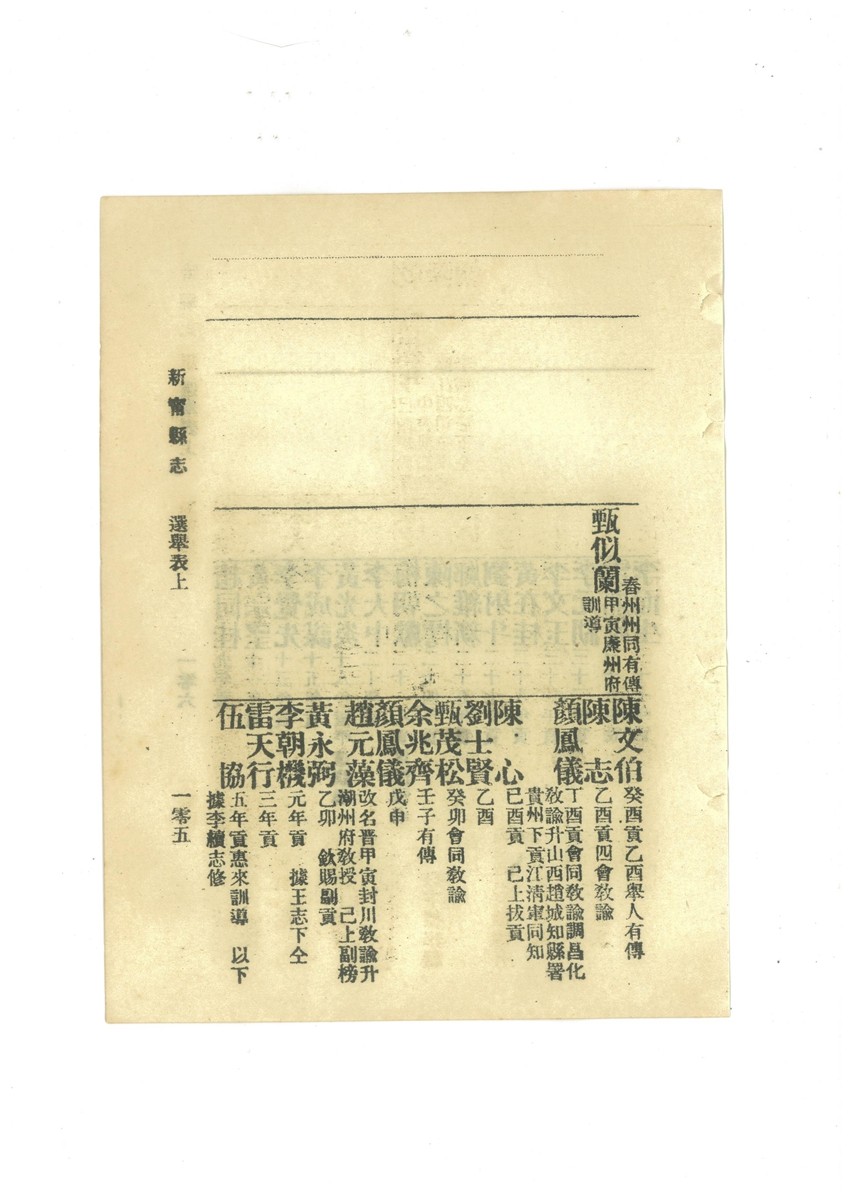 甄似蘭
春州州同有傳
甲寅廉州府
訓導
陳文伯
癸酉貢乙酉舉人有傳
陳志
乙酉貢四會敎諭
顏鳳儀
丁酉貢會同敎諭調昌化
敎諭升山西趙城知縣署
貴州下貢江淸軍同知
陳心
已酉貢 已上拔貢
劉士賢
乙酉
甄茂松
癸卯會同敎諭
余兆齊
壬子有傳
顏鳳儀
戊申
趙元藻
改名晋甲寅封川敎諭升
潮州府敎授 已上副榜
黃永弼
乙卯 欽賜副貢
李朝機
元年貢 據王志下仝
雷天行
三年貢
伍協
五年貢惠來訓導 以下
據李續志修
新甯縣志 選舉表上 一零五